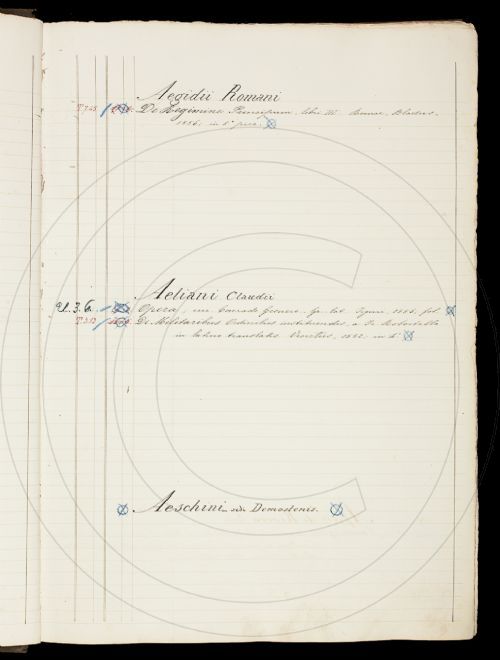 Aegidii Romani
T.7.45 De Regimine Principum, libri III. Romae, Bladus,
1556, in 8°
Aeliani Claudii
U. 3. 6. Opera, Conrado Gesnero. Gr. lat. Tiguri, 1556, fol.
De Militaribus Ordinibus instituendis, a Fr. Robortello
in latinum translatus. Venetiis, 1552, in 4°
Aeschini ... Demostenis.